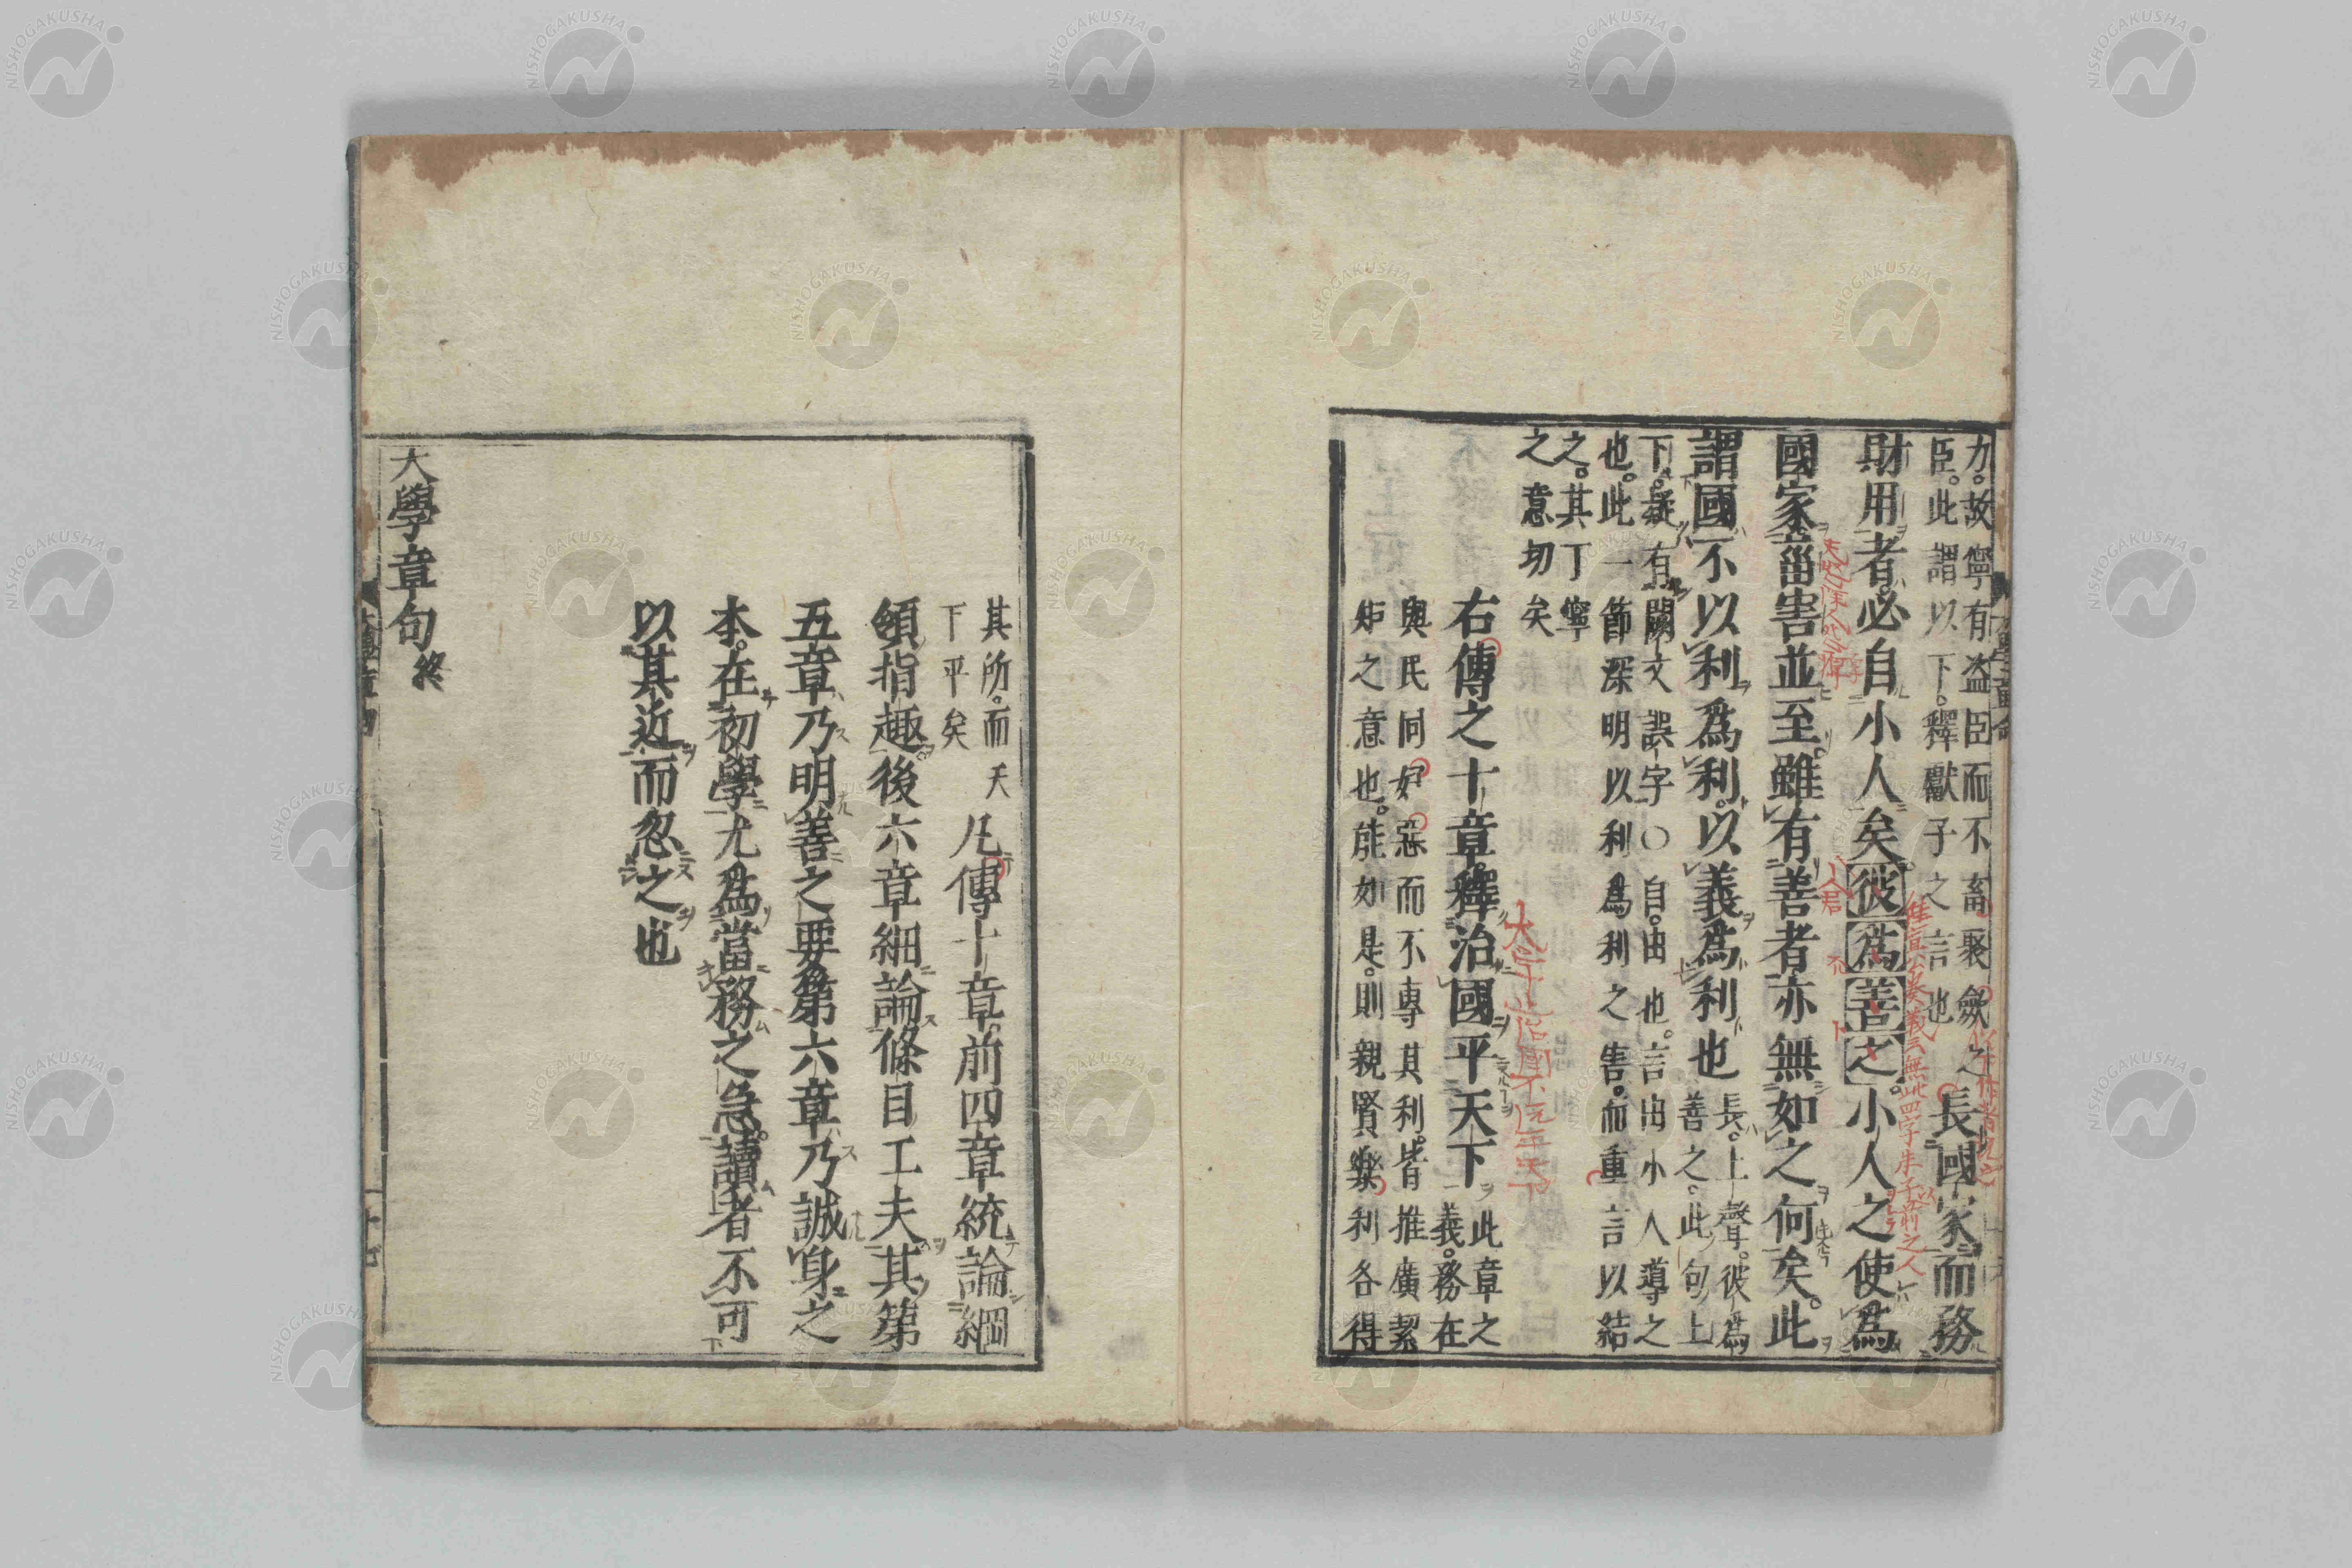 力。故寧有盗臣而不畜聚斂之
臣。此謂以下。釋獻子之言也
長國家而務
財用者。必自小人矣。彼爲善之。小人之使爲
國家。菑害並至。雖有善者亦無如之何矣。此
謂國不以利爲利。以義爲利也
長。上聲。彼爲
善之。此句上
下。疑有闕文誤字〇自。由也。言由小人導之
也。此一節深明以利爲利之害。而重言以結
之。其丁寧
之意切矣
右傳之十章。釋治國平天下
此章之
義。務在
與民同好惡而不專其利。皆推廣絜
矩之意也。能如是。則親賢樂利各得
其所。而天
下平矣
凡傳十章。前四章統論綱
領指趣。後六章細論條目工夫。其第
五章乃明善之要。第六章乃誠身之
本。在初學尤爲當務之急。讀者不可
以其近而忽之也
大學章句終
人君
NISHOGAKUSHA